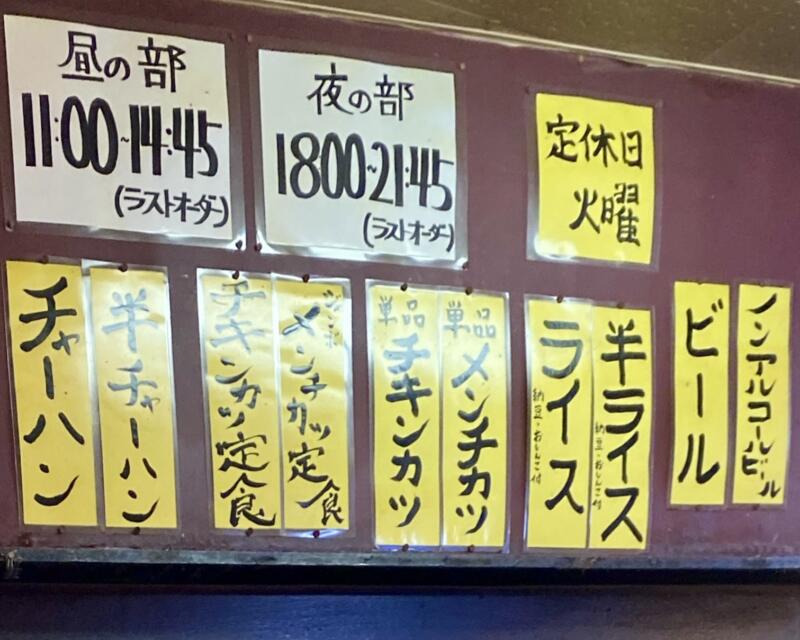 昼の部
11:00~14:45
(ラストオーダー)
夜の部
1800~21:45
(ラストオーダー)
定休日
火曜
チャーハン
半チャーハン
チキンカツ定食
メンチカツ定食
単品
チキンカツ
単品
メンチカツ
ライス
納豆・おしんこ付
半ライス
納豆・おしんこ付
ビール
ノンアルコールビール